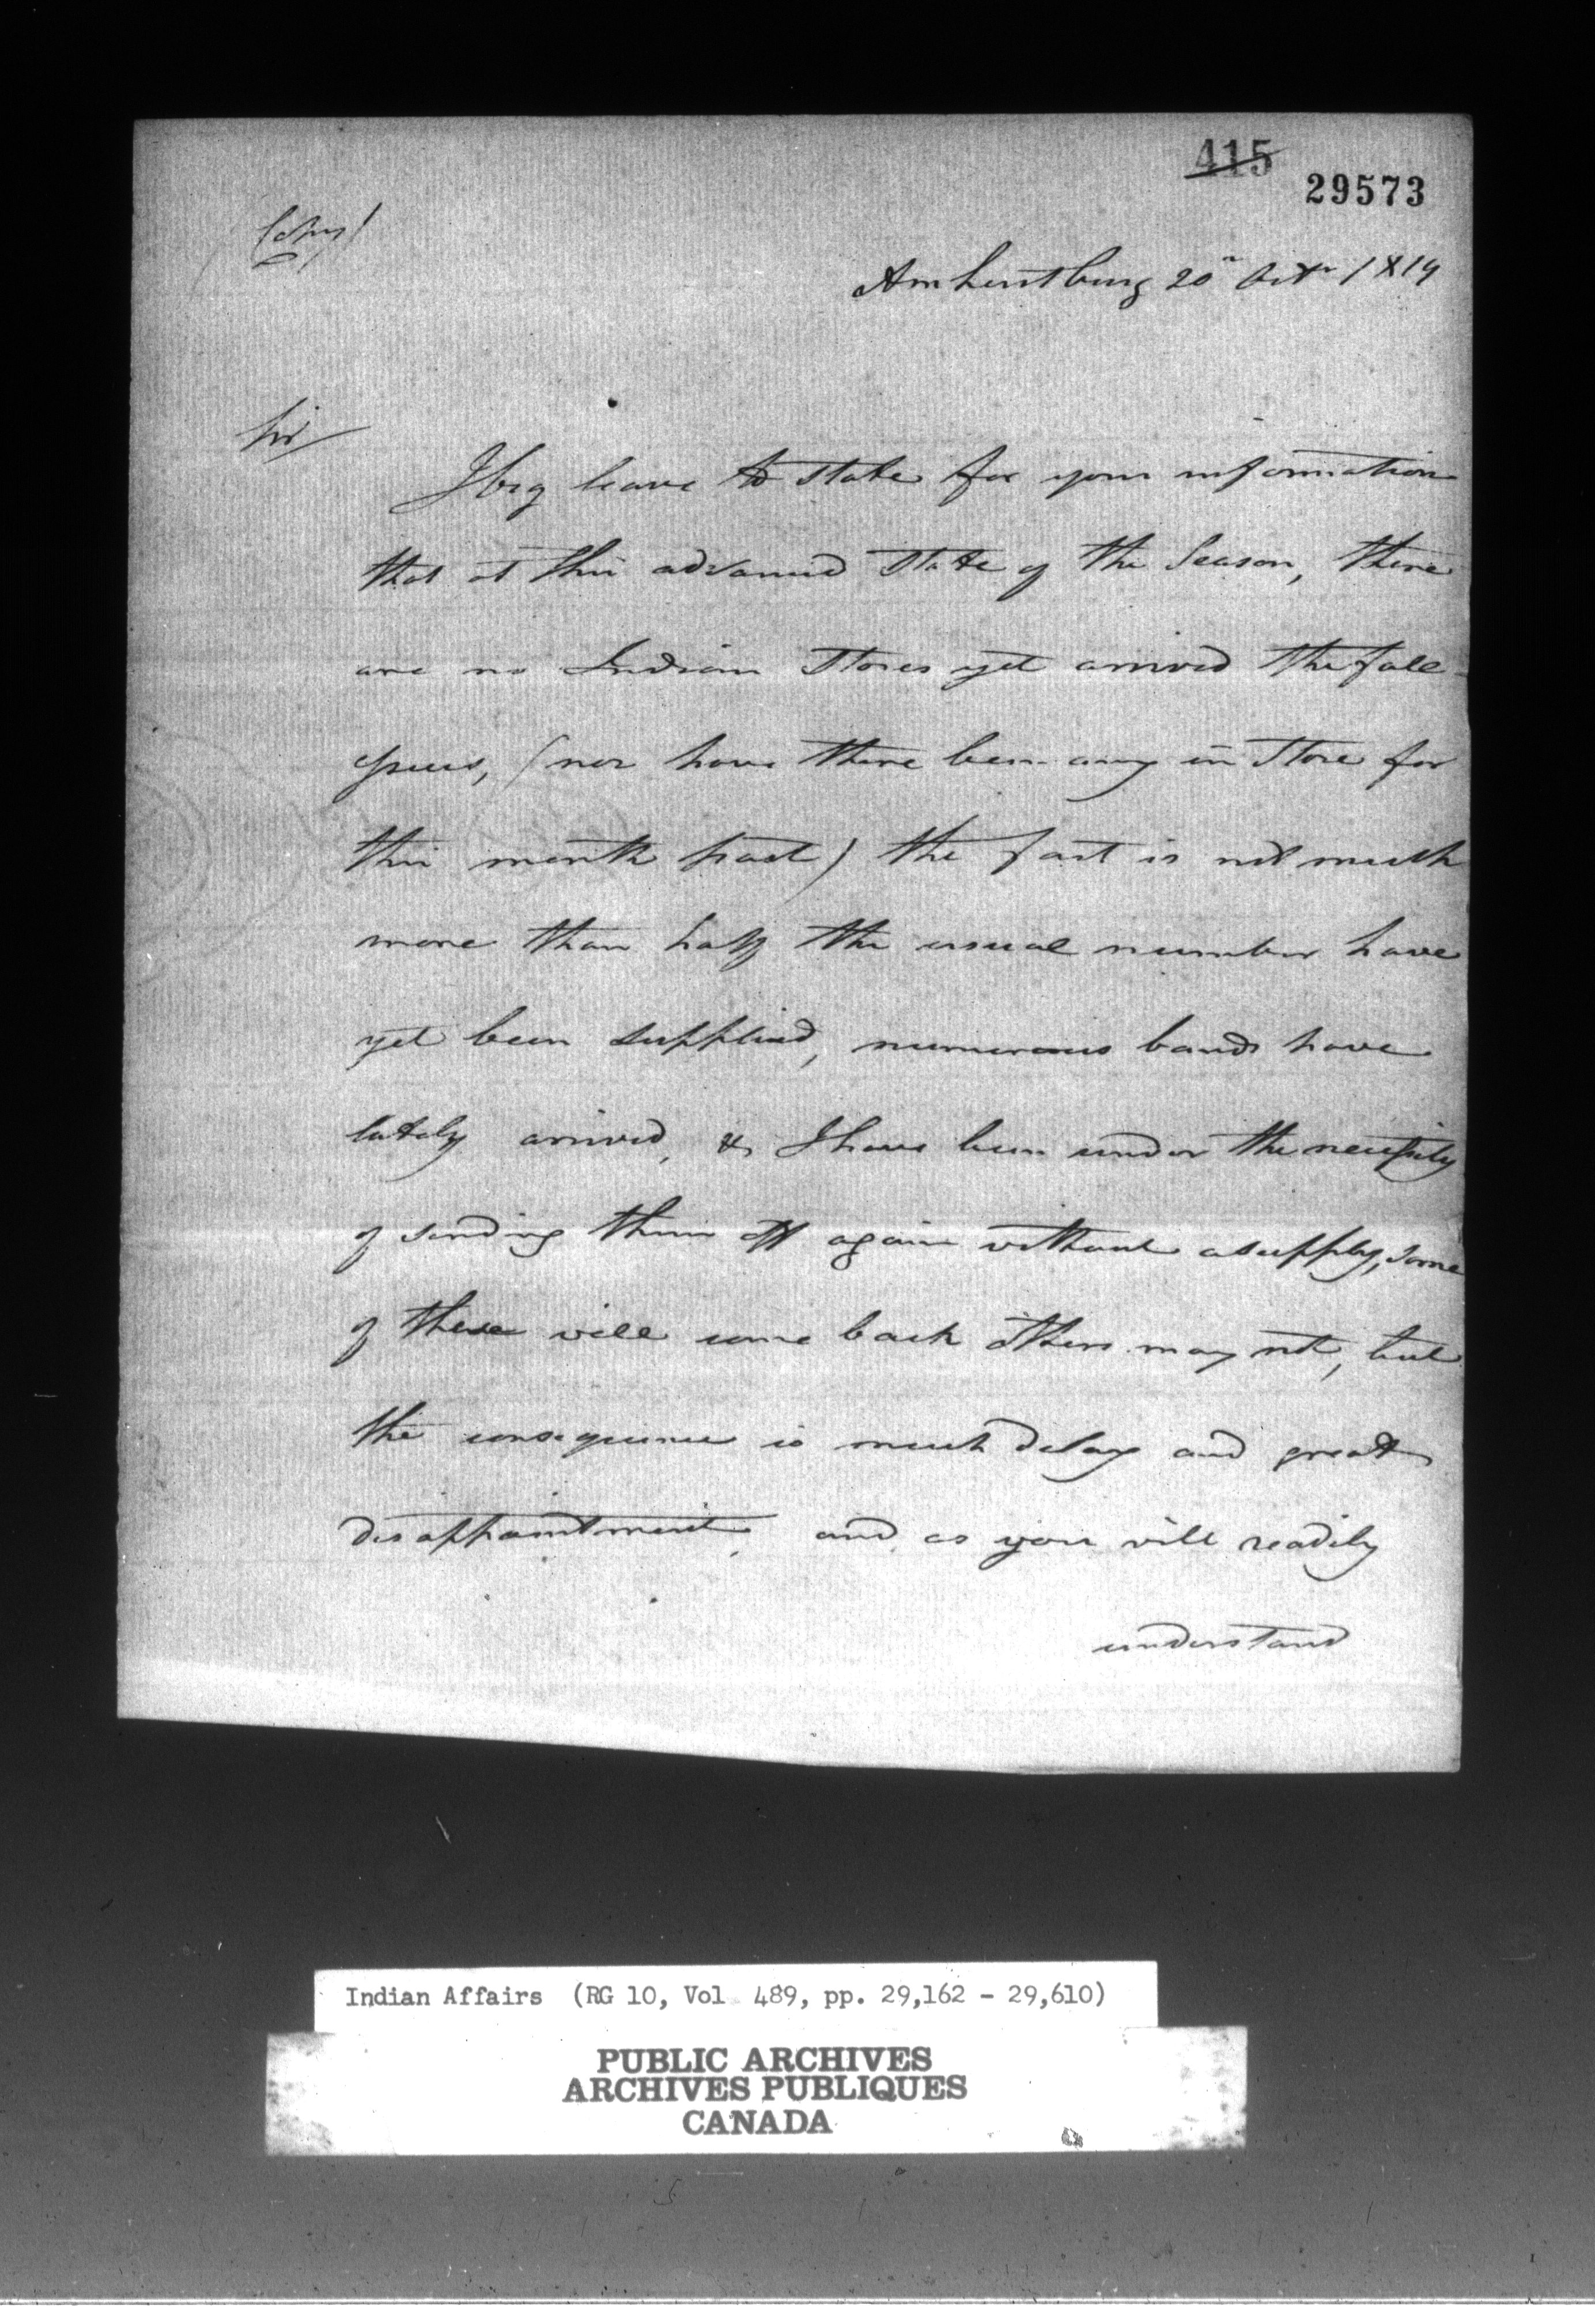 415
29573
(Copy)
Amherstburg 20th Octr 1819
Sir
I beg leave to state for your information
that at this advanced State of the Season, there
are no Indian Stores yet arrived the fall
(nor have there been any in Store for
this month past) the fact is not much
more than half the usual number have
yet been supplied, numerous bands have
lately arrived, & I have been under the necessity
of sending them off again without a supply, some
of these will come back others may not, but
the consequence is much delay and great
disappointment, and as you will readily
understand
Indian Affairs (RG 10, Vol 489, pp. 29,162 - 29,610)
PUBLIC ARCHIVES
ARCHIVES PUBLIQUES
CANADA